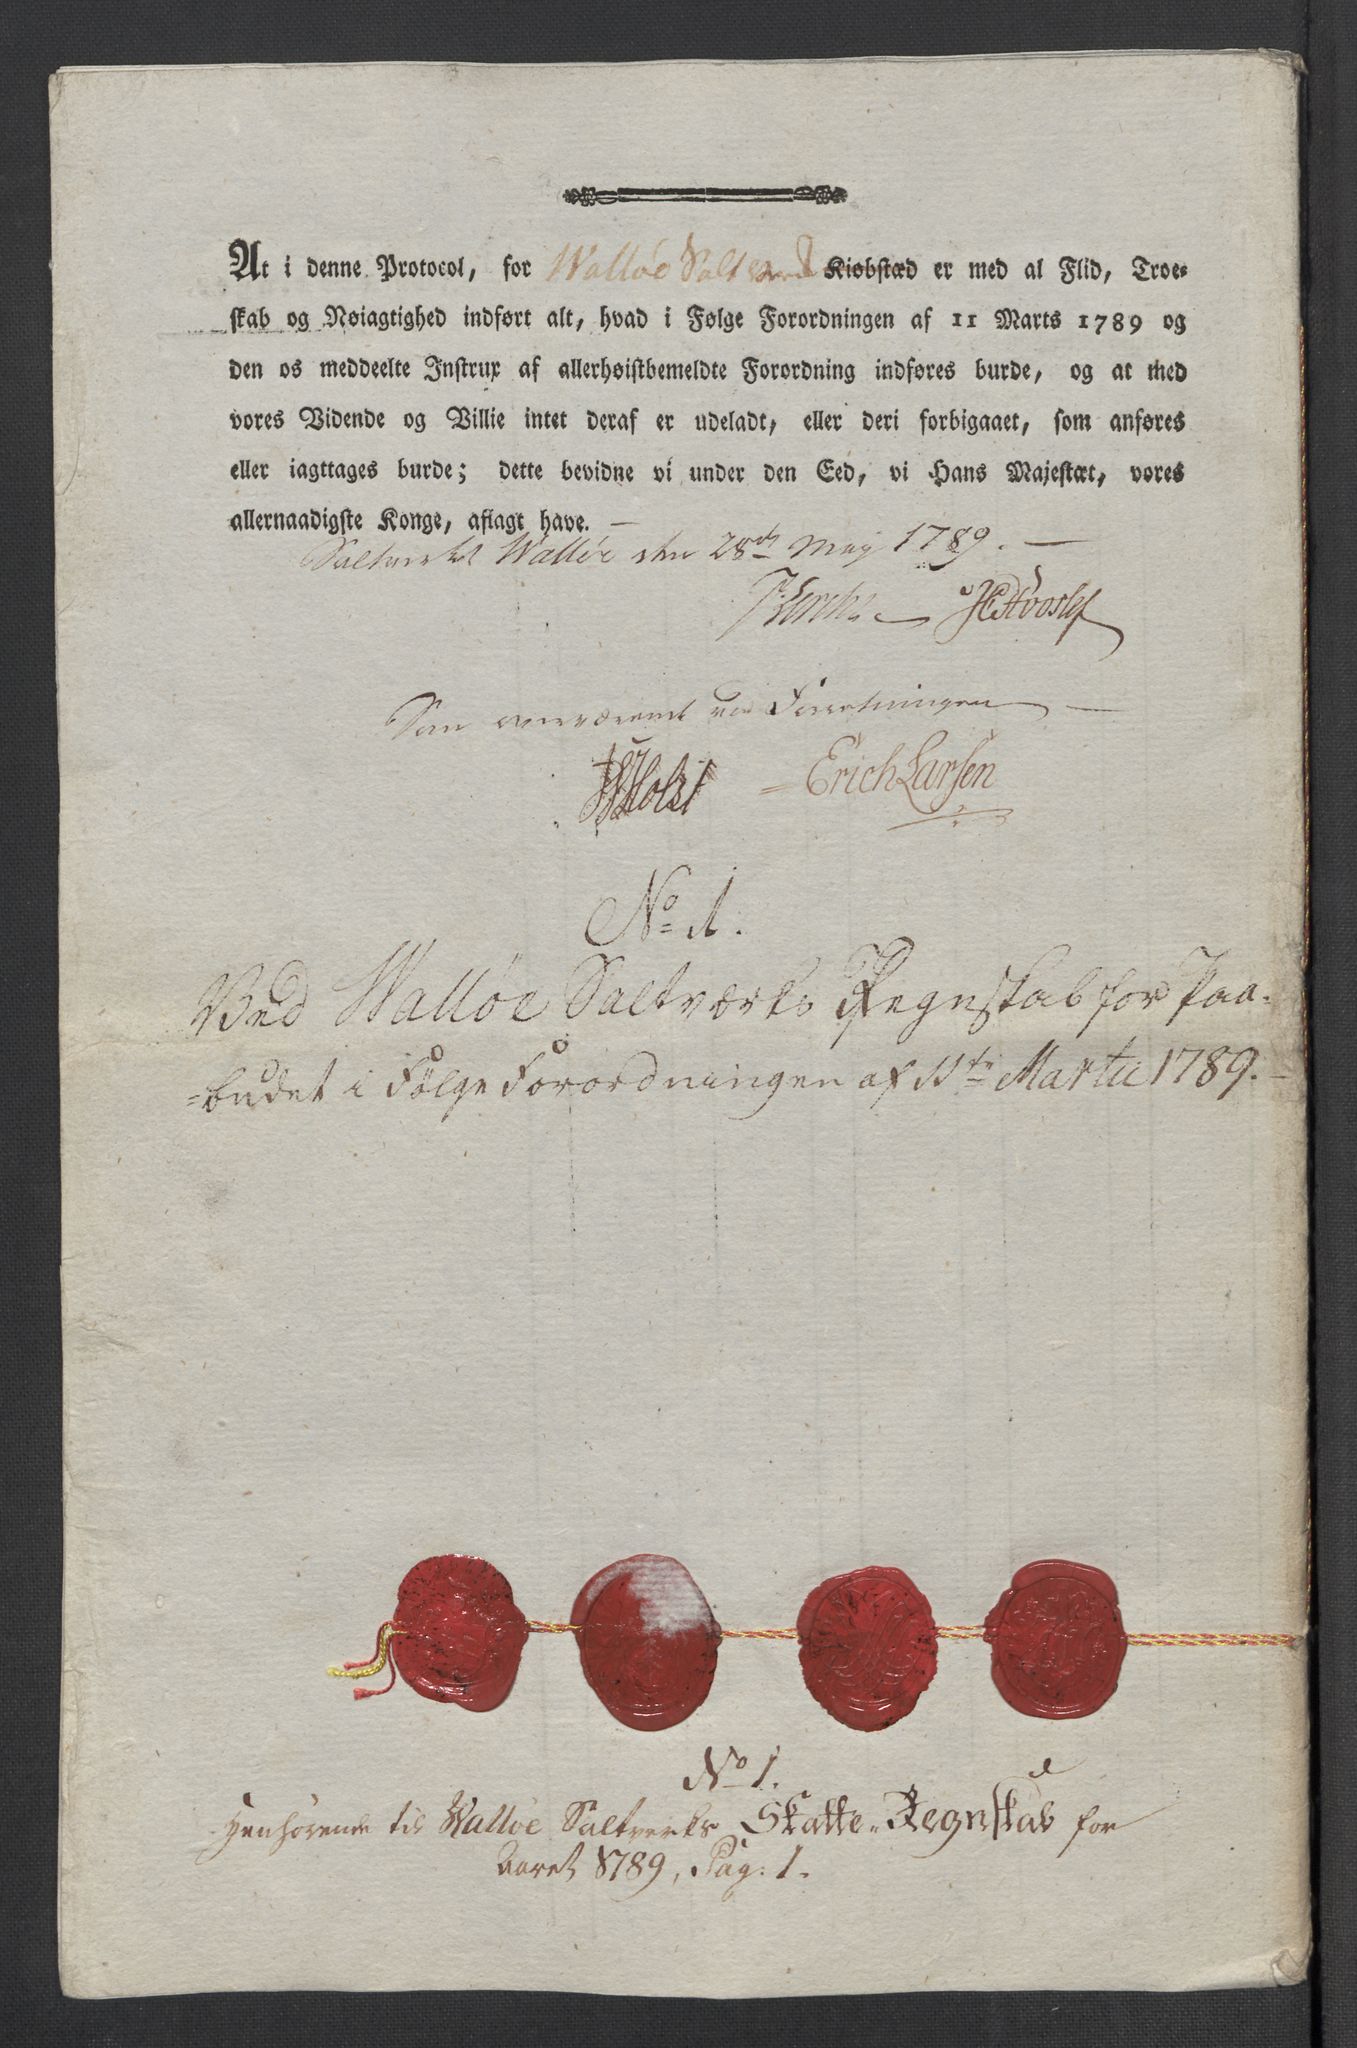 At i denne Protocol, for Walløe Saltværk Kiøbstæd er med al Flid, Troe-
skab og Nøiagtighed indført alt, hvad i Følge Forordningen af 11 Marts 1789 og
den os meddeelte Instrux af allerhøistbemeldte Forordning indføres burde, og at med
vores Vidende og Villie intet deraf er udeladt, eller deri forbigaaet, som anføres
eller iagttages burde; dette bevidne vi under den Eed, vi Hans Majestæt, vores
allernaadigste Konge, aflagt have. —
Saltverket Walløe den 28de May 1789. —
Som overværende ved Forretningen —
Holst = Erich Larsen
No 1.
Ved Walløe Saltværks Regnskab for Paa-
=budet i Følge Forordningen af 11te Martii 1789. —
No 1.
Henhørende til Walløe Saltverks Skatte-Regnskab for
Aaret 1789, Pag: 1.